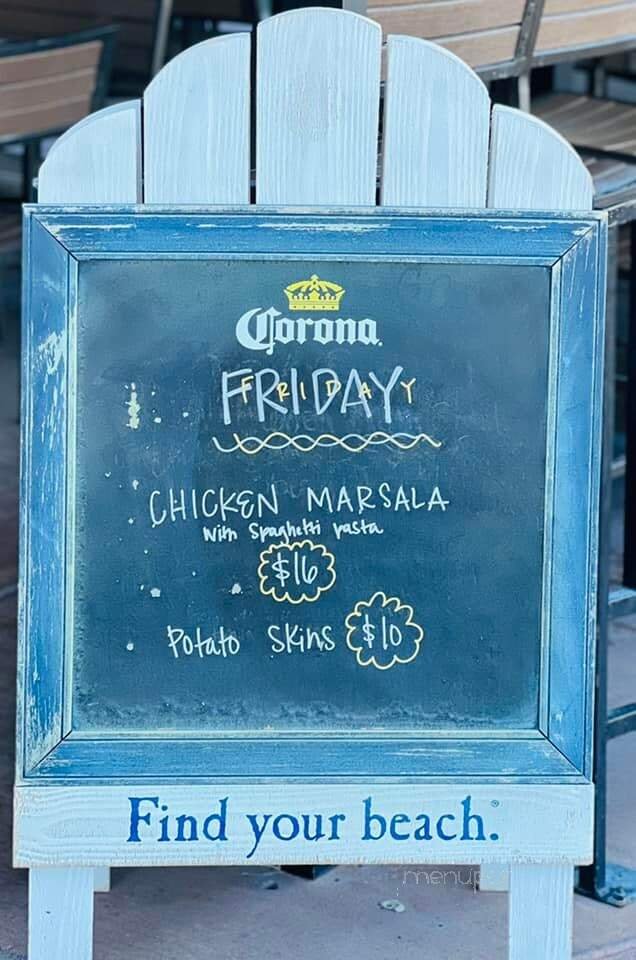 Corona
FRIDAY
FRIDAY
CHICKEN MARSALA
with Spaghetti Pasta
$16
Potato Skins $10
Find your beach.®